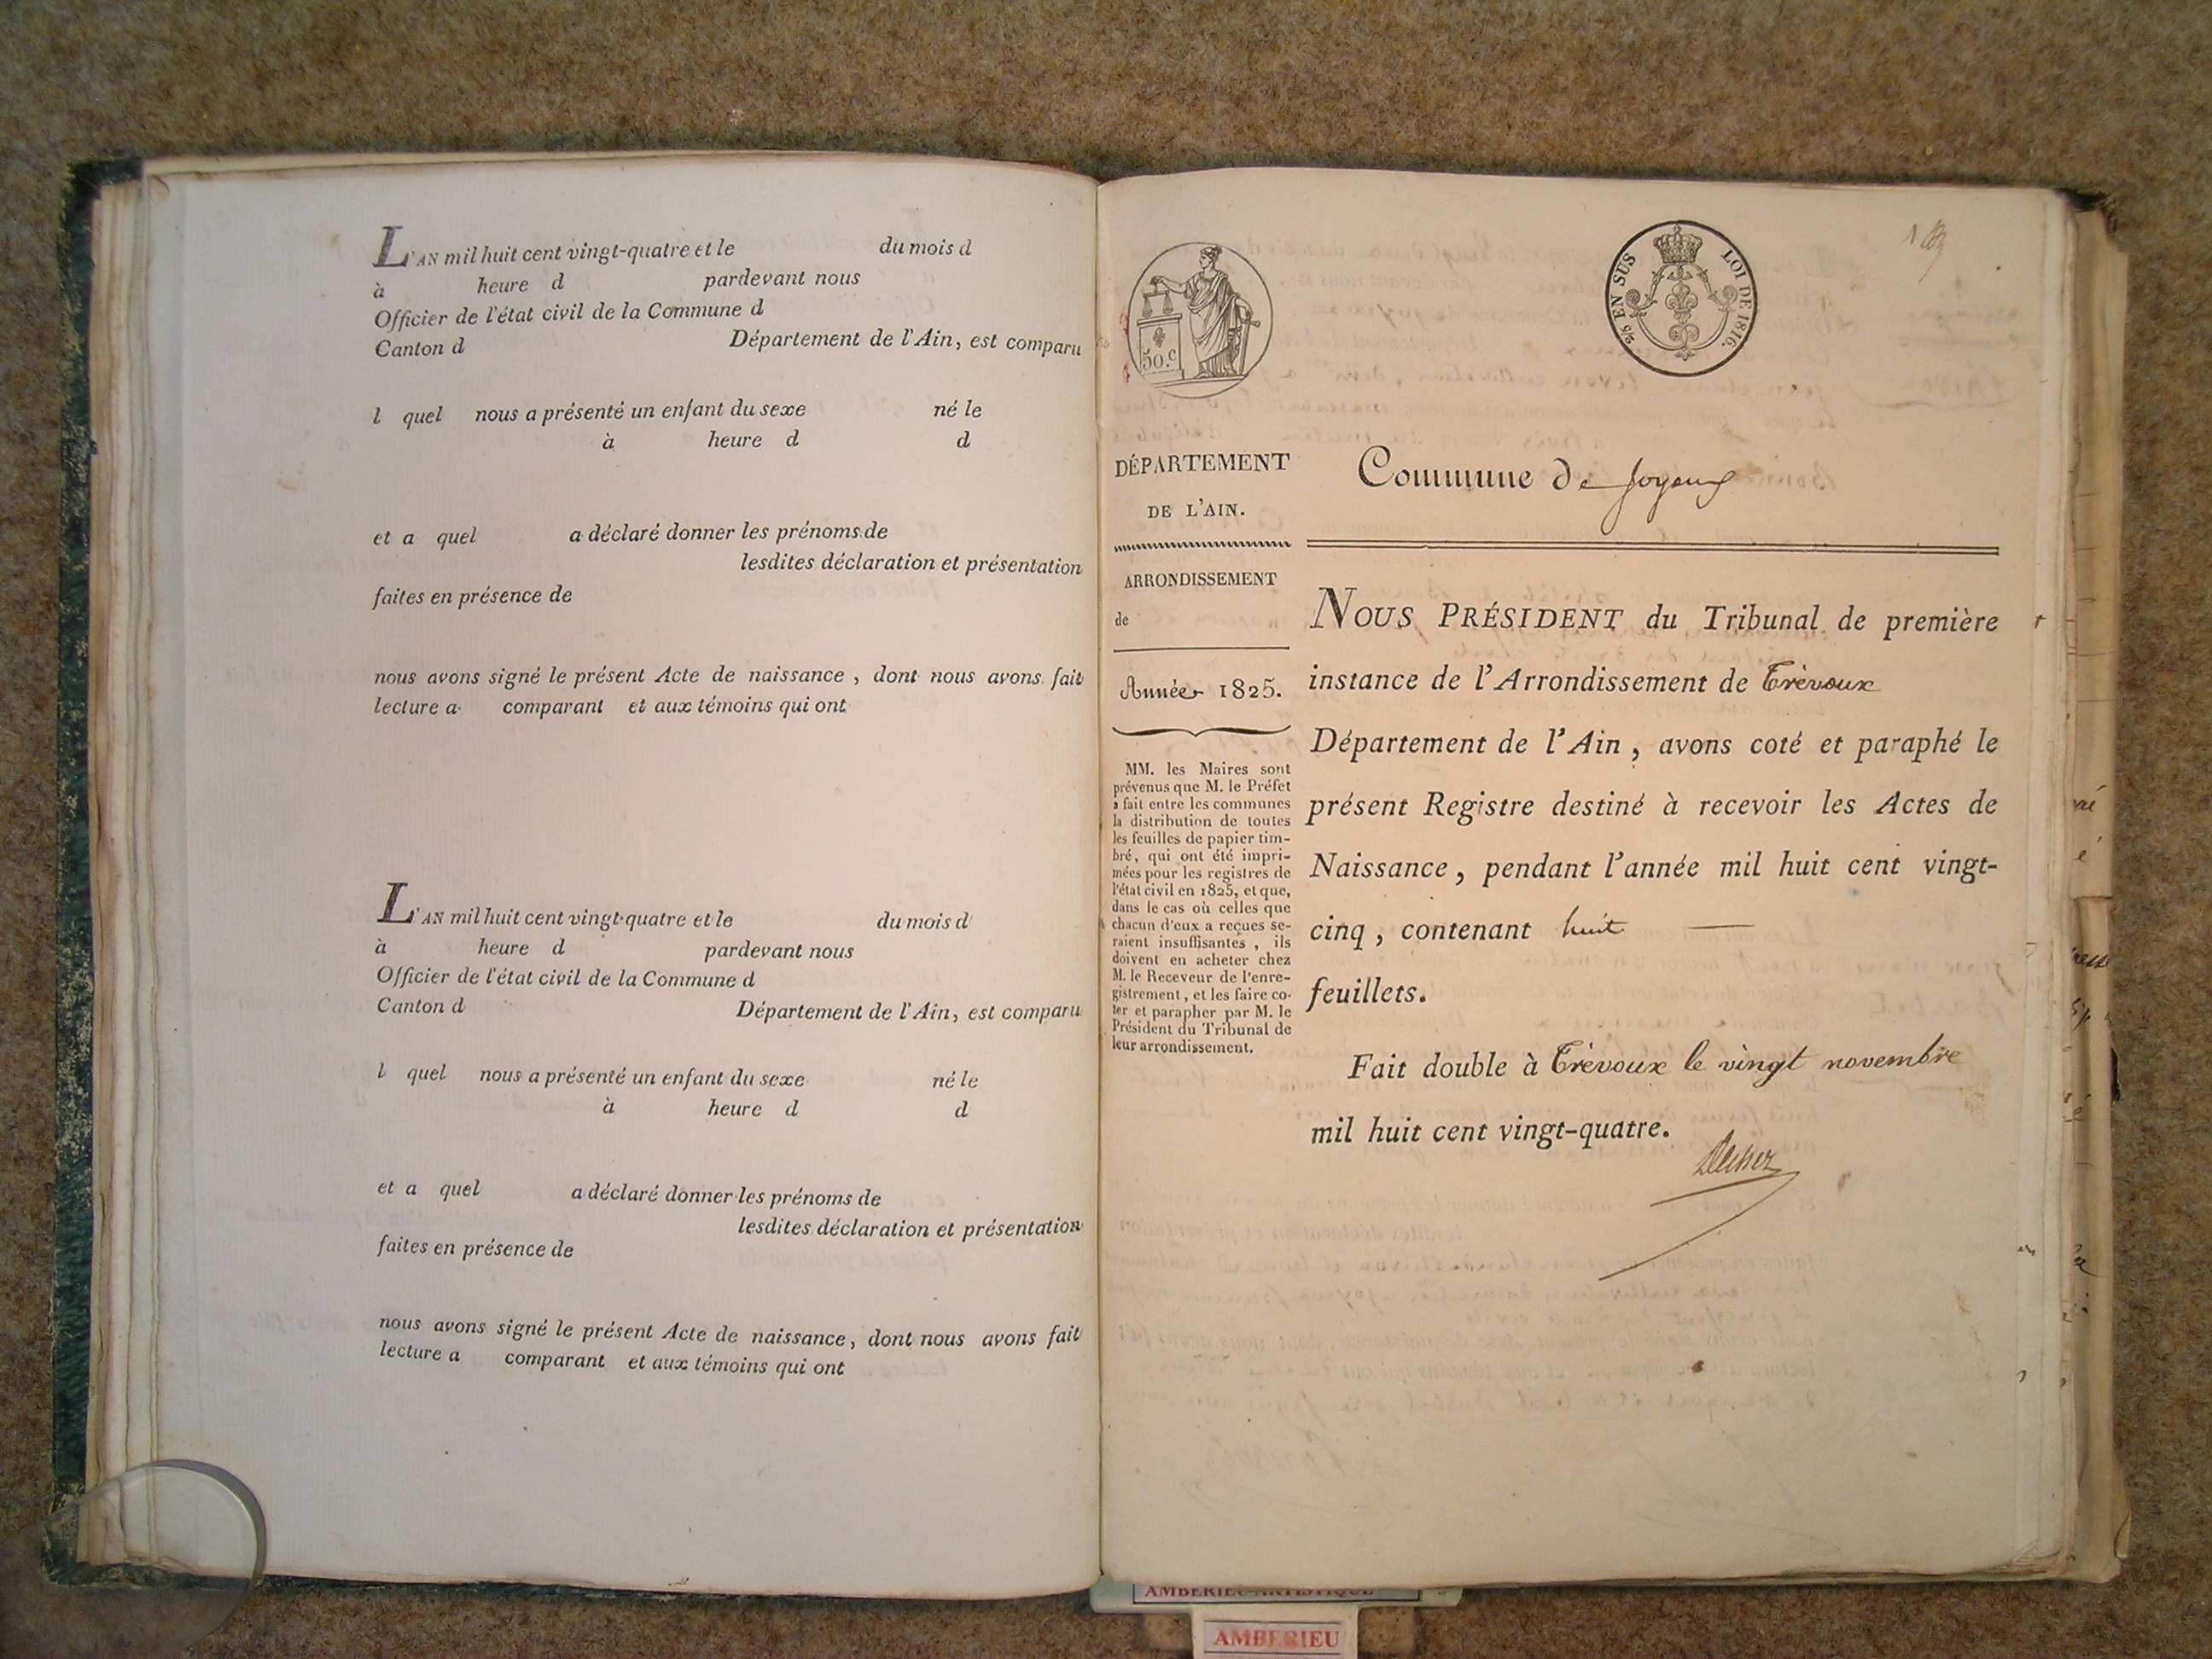 L'AN mil huit cent vingt-quatre et le du mois d
à heure d pardevant nous
Officier de l'état civil de la Commune d
Canton d Département de l'Ain, est comparu
l quel nous a présenté un enfant du sexe né le
à heure d d
et a quel a déclaré donner les prénoms de
lesdites déclaration et présentation
faites en présence de
nous avons signé le présent Acte de naissance, dont nous avons fait
lecture a comparant et aux témoins qui ont
L'AN mil huit cent vingt-quatre et le du mois d
à heure d pardevant nous
Officier de l'état civil de la Commune d
Canton d Département de l'Ain, est comparu
l quel nous a présenté un enfant du sexe né le
à heure d d
et a quel a déclaré donner les prénoms de
lesdites déclaration et présentation
faites en présence de
nous avons signé le présent Acte de naissance, dont nous avons fait
lecture a comparant et aux témoins qui ont
50.c
2/5 EN SUS LOI DE 1816.
DÉPARTEMENT
DE L'AIN.
ARRONDISSEMENT
de
Année 1825.
MM. les Maires sont
prévenus que M. le Préfet
a fait entre les communes
la distribution de toutes
les feuilles de papier tim-
bré, qui ont été impri-
mées pour les registres de
l'état civil en 1825, et que,
dans le cas où celles que
chacun d'eux a reçues se-
raient insuffisantes, ils
doivent en acheter chez
M. le Receveur de l'enre-
gistrement, et les faire co-
ter et parapher par M. le
Président du Tribunal de
leur arrondissement.
Commune de Joyeux
NOUS PRÉSIDENT du Tribunal de première
instance de l'Arrondissement de Trévoux
Département de l'Ain, avons coté et paraphé le
présent Registre destiné à recevoir les Actes de
Naissance, pendant l'année mil huit cent vingt-
cinq, contenant huit
feuillets.
Fait double à Trévoux le vingt novembre
mil huit cent vingt-quatre.
AMBERIEU-ARTISTIQUE
AMBERIEU